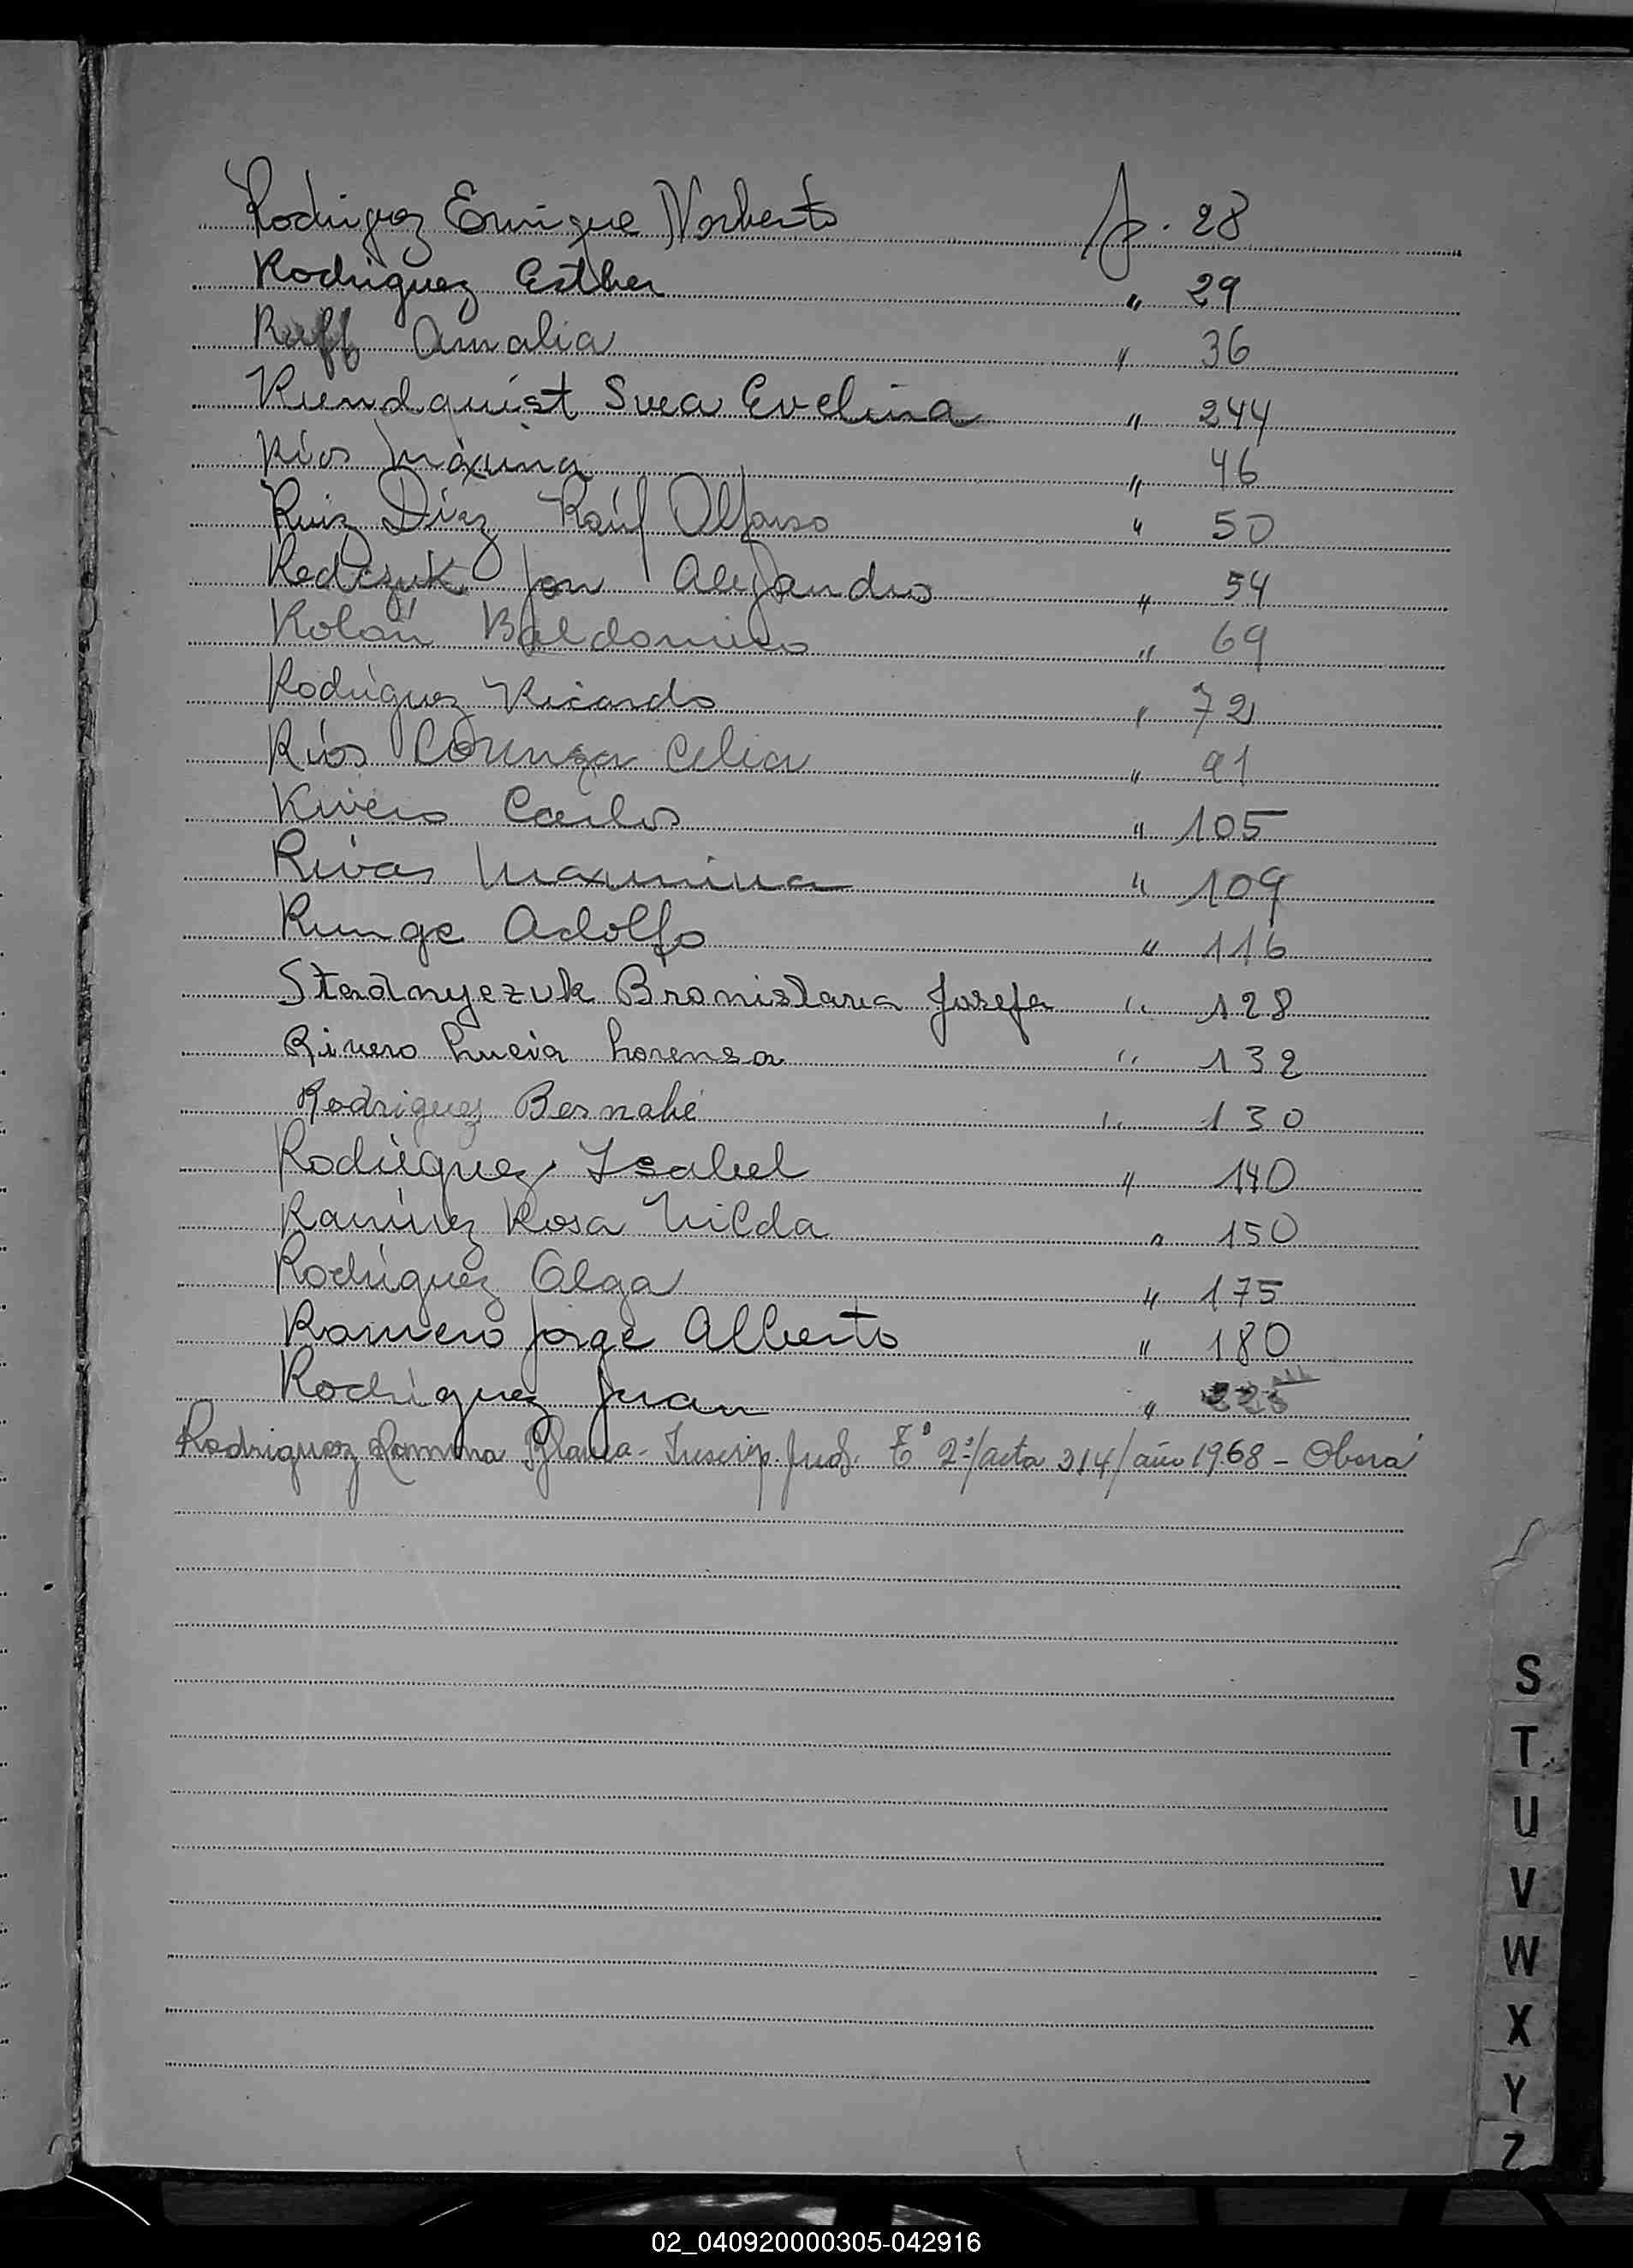 Rodriguez Enrique Norberto fo. 28
Rodriguez Esther " 29
Ruff Amalia " 36
Rundquist Svea Evelina " 244
Ríos Máxima " 46
Ruiz Díaz Raúl Alfonso " 50
Redczuk Jon Alejandro " 54
Rolón Baldomero " 69
Rodríguez Ricardo " 72
Ríos Lorenza Celia " 91
Rivero Carlos " 105
Rivas Maxmina " 109
Runge Adolfo " 116
Stadnyczuk Bronislava Josefa " 128
Rivero Lucia Lorensa " 132
Rodriguez Bernabé " 130
Rodríguez Isabel " 140
Ramírez Rosa Nilda " 150
Rodríguez Olga " 175
Romero Jorge Alberto " 180
Rodríguez Juan " 225
Rodriguez Ramona Blanca - Inscrip. Jud. Tº 2º/acta 314/ año 1968 - Oberá
S
T
U
V
W
X
Y
Z
02_040920000305-042916